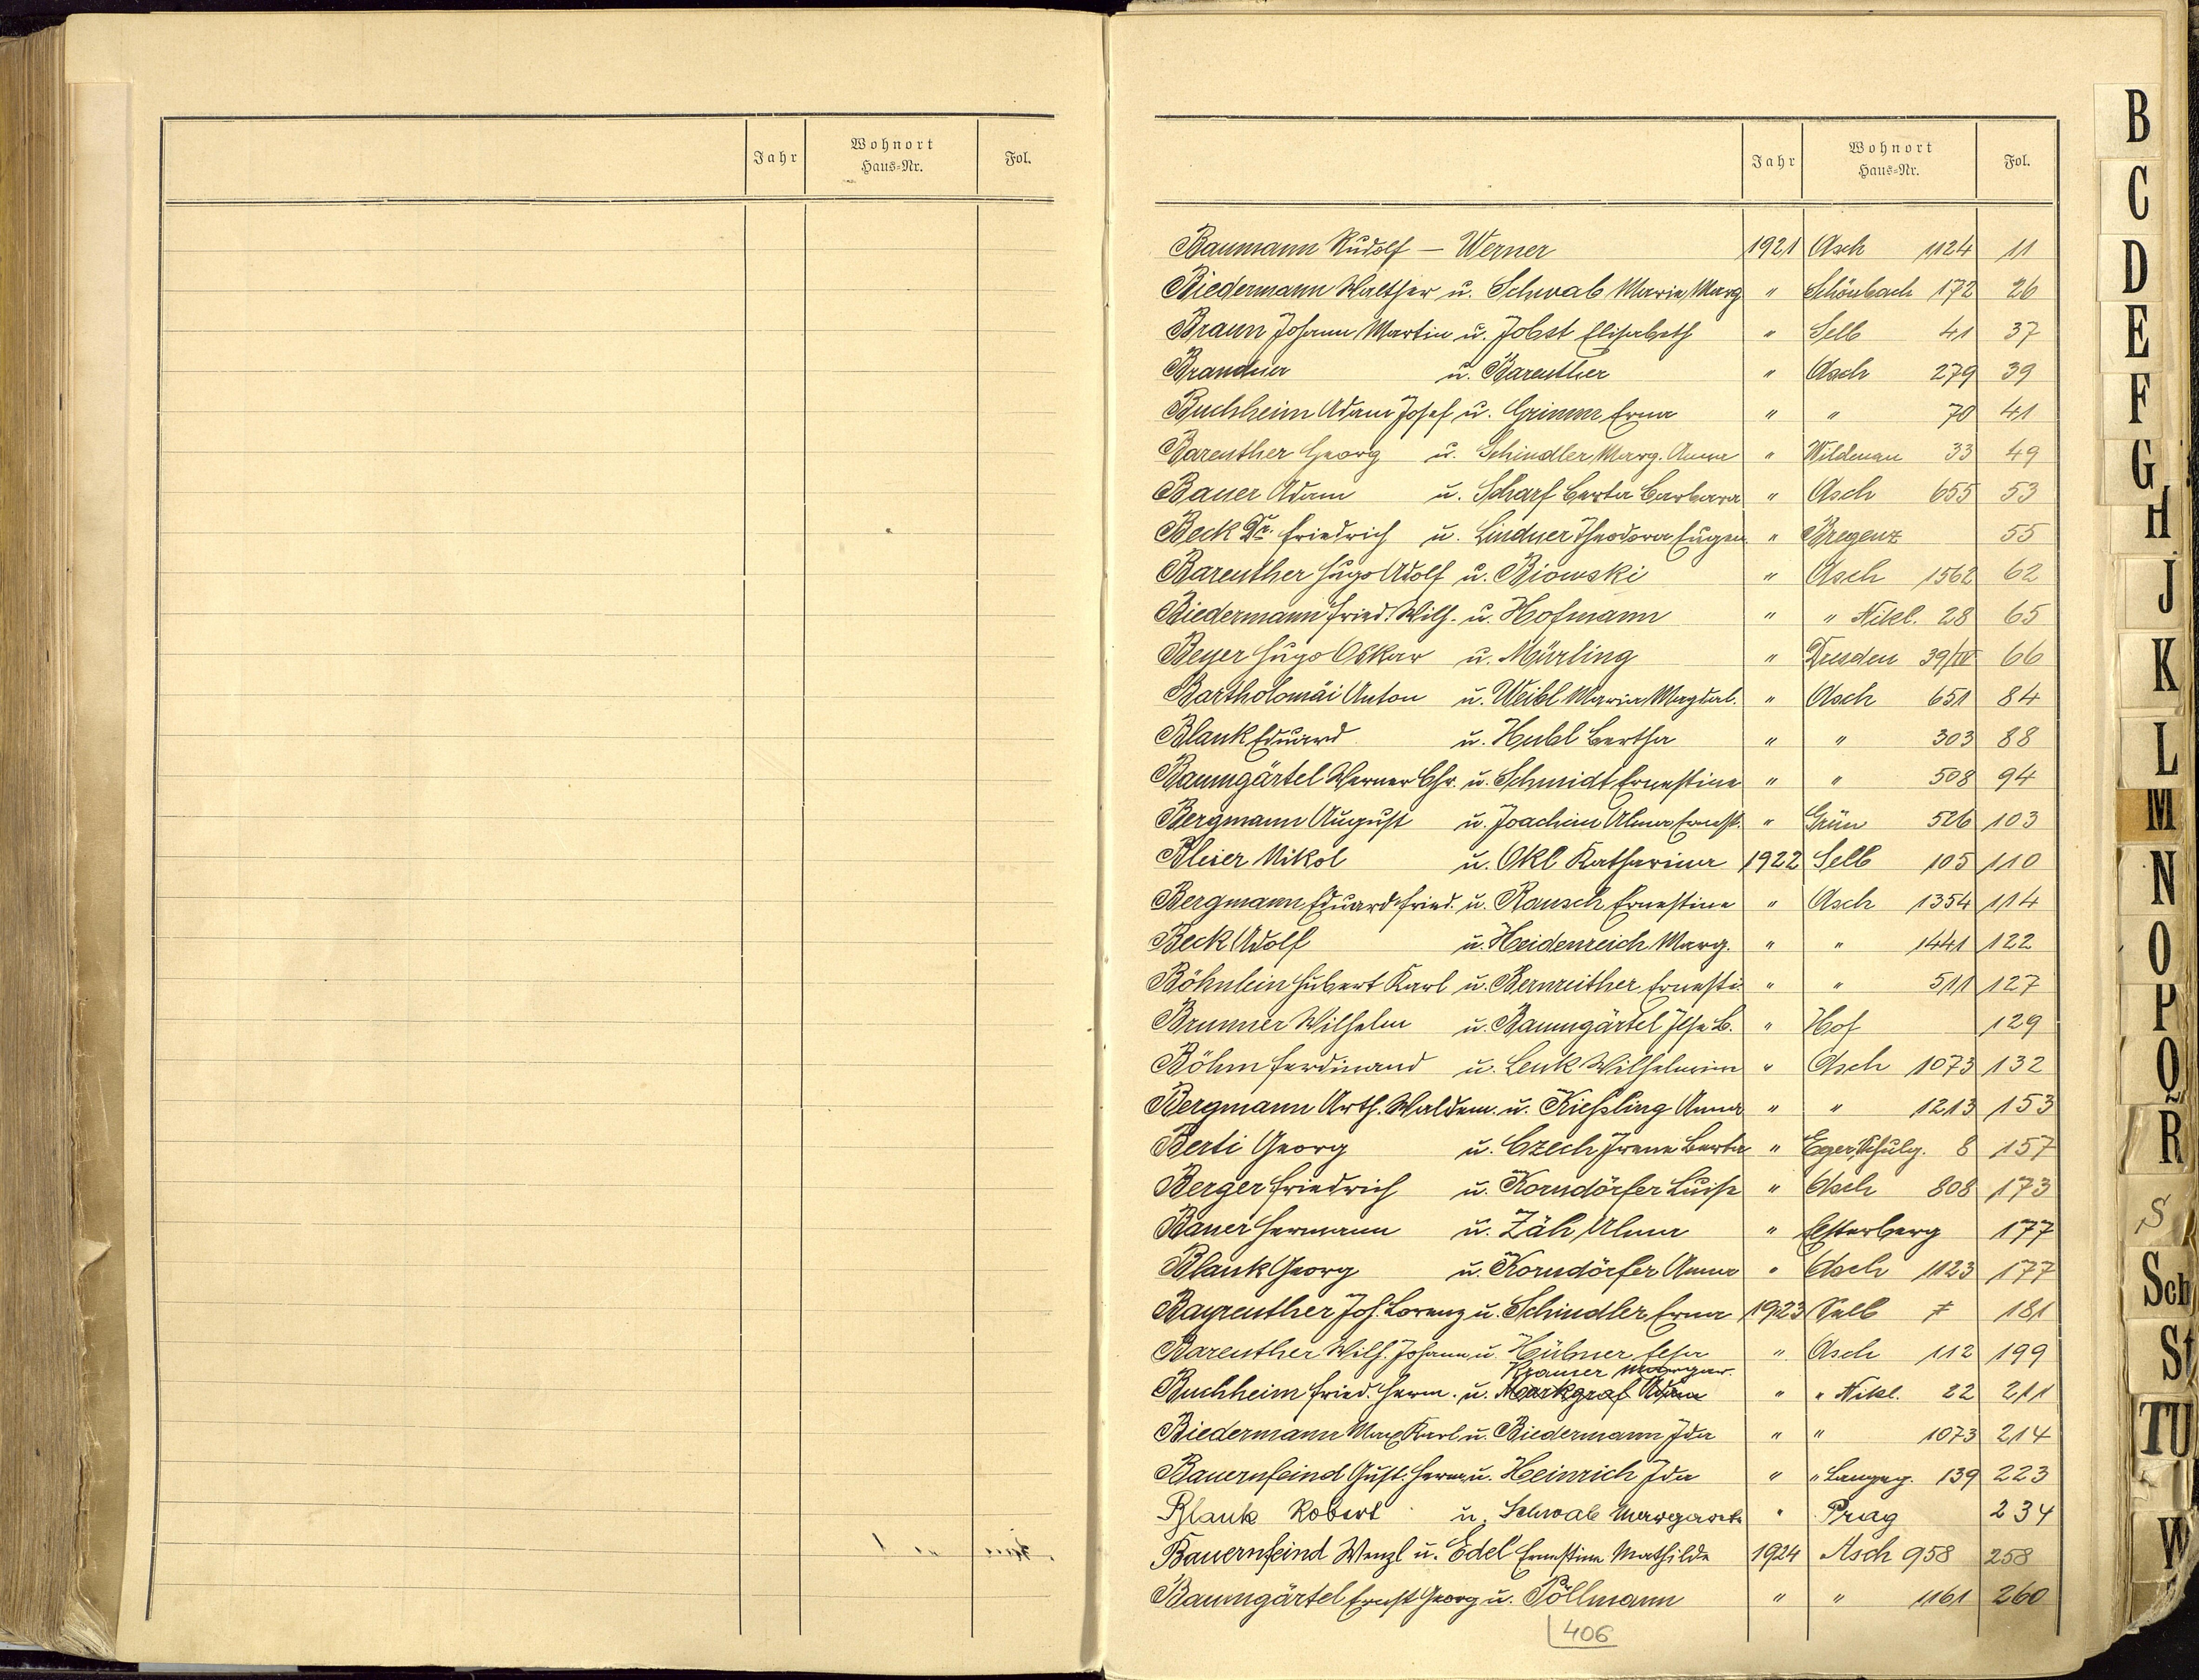 Jahr Wohnort Haus-Nr. Fol.
Jahr Wohnort Haus-Nr. Fol.
Baumann Rudolf — Werner 1921 Asch 1124 11
Biedermann Walther u. Schwab Maria Marg " Schönbach 172 26
Braun Johann Martin u. Jobst Elisabeth " Selb 41 37
Brandner u. Bareuther " Asch 279 39
Buchheim Adam Josef u. Grimm Erna " " 70 41
Bareuther Georg u. Schindler Marg. Anna " Wildenau 33 49
Bauer Adam u. Scharf Berta Barbara " Asch 655 53
Beck Dr. Friedrich u. Lindner Theodora Eugen " Bregenz 55
Bareuther Hugo Adolf u. Biowski " Asch 1562 62
Biedermann Fried. Wilh. u. Hofmann " " Nikl. 28 65
Beyer Hugo Oskar u. Mürling " Dresden 39/IV 66
Bartholomäi Anton u. Weibl Maria Magdal. " Asch 651 84
Blank Eduard u. Hubl Bertha " " 303 88
Baumgärtel Werner Chr. u. Schmidt Ernestine " " 508 94
Bergmann August u. Joachim Alma Ernest. " Grün 526 103
Bleier Nikol u. Okl Katharina 1922 Selb 105 110
Bergmann Eduard Fried. u. Rausch Ernestine " Asch 1354 114
Beck Adolf u. Heidenreich Marg. " " 1441 122
Böhnlein Hubert Karl u. Bernreither Ernesti. " " 511 127
Brunner Wilhelm u. Baumgärtel Ilse B. " Hof 129
Böhm Ferdinand u. Lenk Wilhelmine " Asch 1073 132
Bergmann Arth. Waldem. u. Kießling Anna " " 1213 153
Berti Georg u. Czech Irene Berta " Eger, Schulg. 8 157
Berger Friedrich u. Korndörfer Luise " Asch 808 173
Bauer Hermann u. Zäh Alma " Elsterberg 177
Blank Georg u. Korndörfer Anna " Asch 1123 177
Bayreuther Joh. Lorenz u. Schindler Erna 1923 Selb 7 181
Bareuther Wilh. Johann u. Hübner Elsa " Asch 112 199
Kramer Margar.
Buchheim Fried. Herm. u. Markgraf " " Nikl. 22 211
Biedermann Max Karl u. Biedermann Ida " " 1073 214
Bauernfeind Gust. Herm. u. Heinrich Ida " " Langeg. 139 223
Blank Robert u. Schwab Margarete " Prag 234
Bauernfeind Wenzl u. Edel Ernestine Mathilde 1924 Asch 958 258
Baumgärtel Ernst Georg u. Pöllmann " " 1161 260
406
B
C
D
E
F
G
H
J
K
L
M
N
O
P
Q
R
S
Sch
St
TU
W